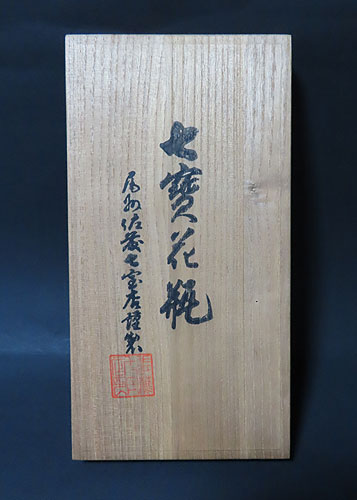 七寶花瓶
尾州佐藤七宝店謹製